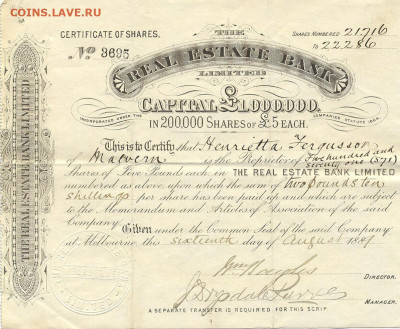 СОИНS.LAVE.RU
CERTIFICATE OF SHARES.
THE
SHARES NUMBERED 21716
TO 22286
No 3695
REAL ESTATE BANK
LIMITED
CAPITAL £1,000,000.
INCORPORATED UNDER THE COMPANIES STATUTE 1864.
IN 200,000 SHARES OF £5 EACH.
This is to Certify that Henrietta Fergusson
of Malvern is the Proprietor of Five hundred and
seventy one (571)
Shares of Five Pounds each in THE REAL ESTATE BANK LIMITED
numbered as above, upon which the sum of two pounds ten
shillings per share has been paid up and which are subject
to the Memorandum and Articles of Association of the said
Company.
Given under the Common Seal of the said Company
at Melbourne this sixteenth day of August 1887
DIRECTOR.
MANAGER.
A SEPARATE TRANSFER IS REQUIRED FOR THIS SCRIP.
THE REAL ESTATE BANK, LIMITED